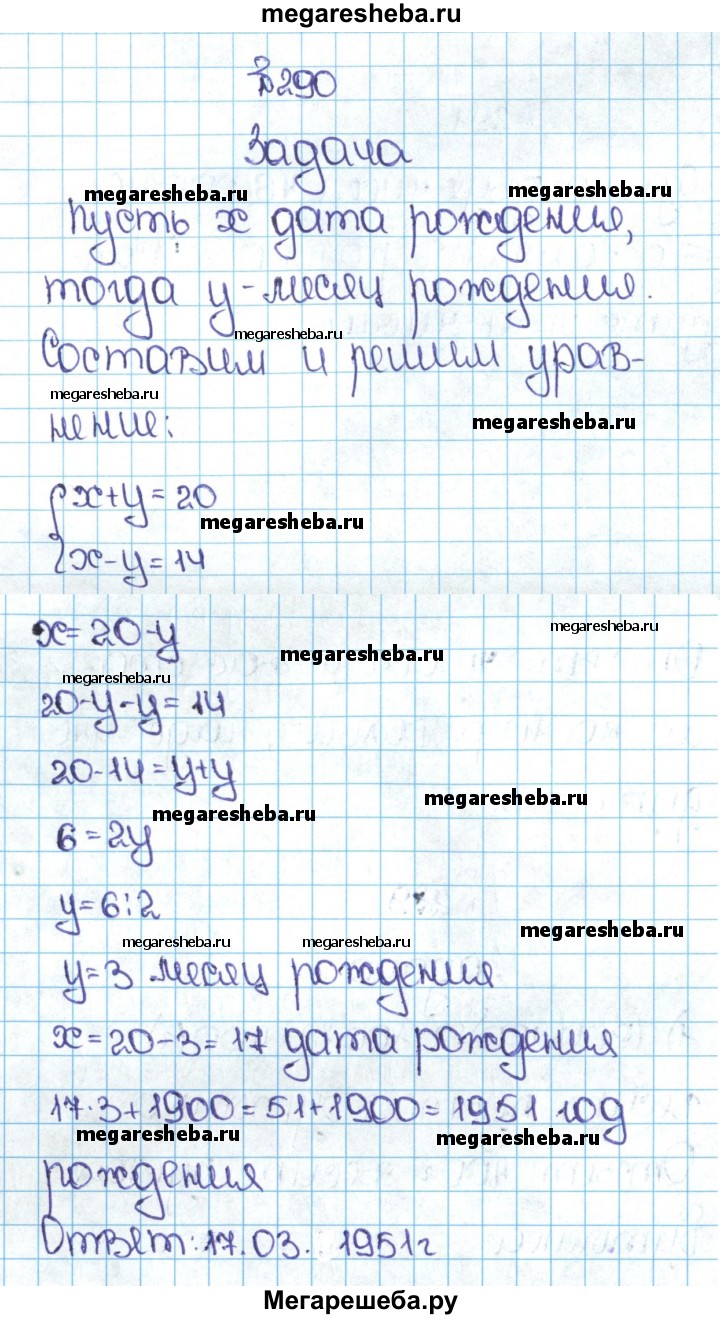 megaresheba.ru
№290
Задача
megaresheba.ru megaresheba.ru
Пусть x дата рождения,
тогда y - месяц рождения.
megaresheba.ru
Составим и решим урав-
megaresheba.ru
нение:
megaresheba.ru
{ x+y=20
megaresheba.ru
x-y=14
x=20-y
megaresheba.ru
megaresheba.ru
megaresheba.ru
20-y-y=14
20-14=y+y
megaresheba.ru
megaresheba.ru
6=2y
y=6:2
megaresheba.ru
megaresheba.ru megaresheba.ru
y=3 месяц рождения
x=20-3=17 дата рождения
17·3+1900=51+1900=1951 год
megaresheba.ru megaresheba.ru
рождения
Ответ: 17.03. 1951г
Мегарешеба.ру